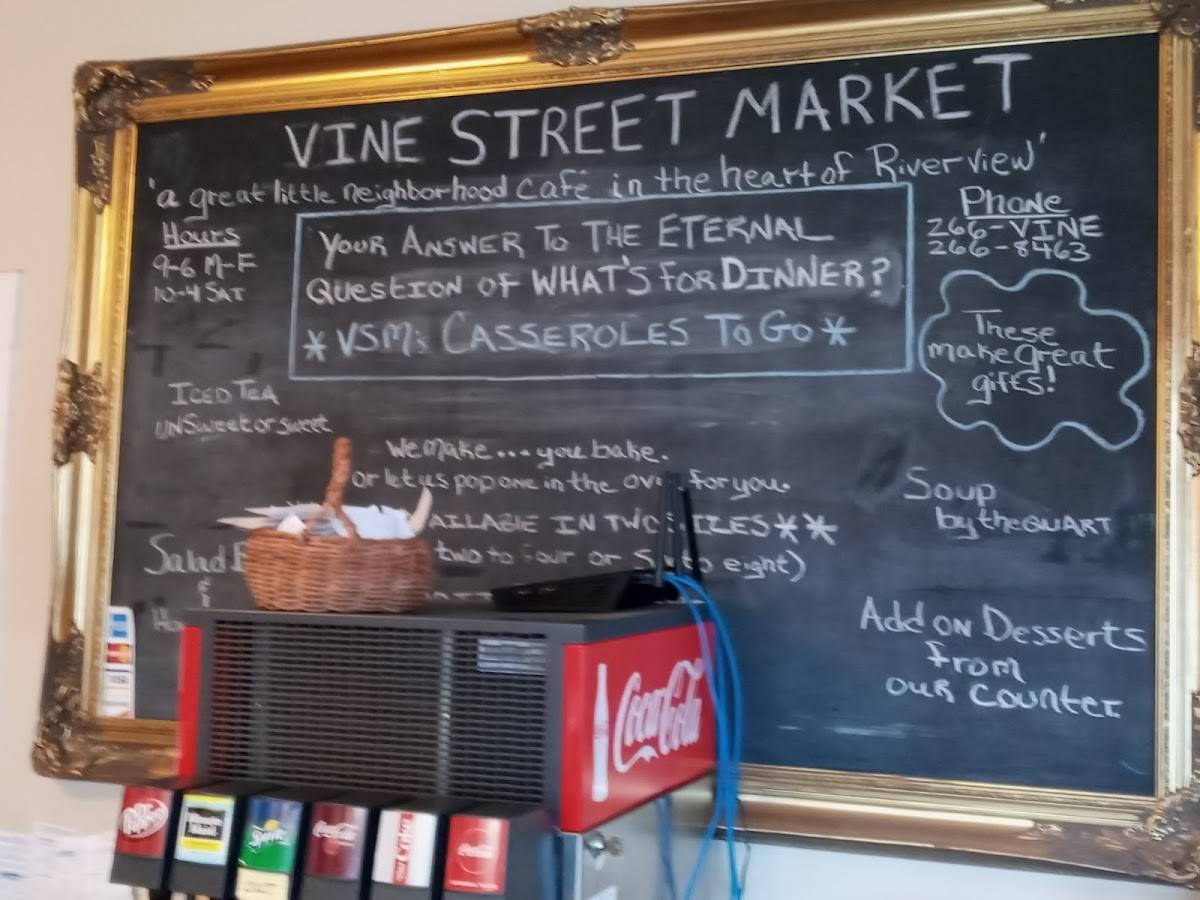 VINE STREET MARKET
'a great little neighborhood café in the heart of Riverview'
Hours
9-6 M-F
10-4 SAT
YOUR ANSWER TO THE ETERNAL
QUESTION OF WHAT'S FOR DINNER?
* VSM's CASSEROLES TO GO *
Phone
266-VINE
266-8463
These
make great
gifts!
ICED TEA
UNSweet or sweet
We Make... you bake.
or let us pop one in the ov for you.
AILABLE IN TWO IZES**
two to four or S to eight)
Soup
by the QUART
Salad
&
Add on Desserts
from
our counter
Coca-Cola
Dr Pepper
Minute Maid
Sprite
Coca-Cola
Diet Coke
Coca-Cola
VISA